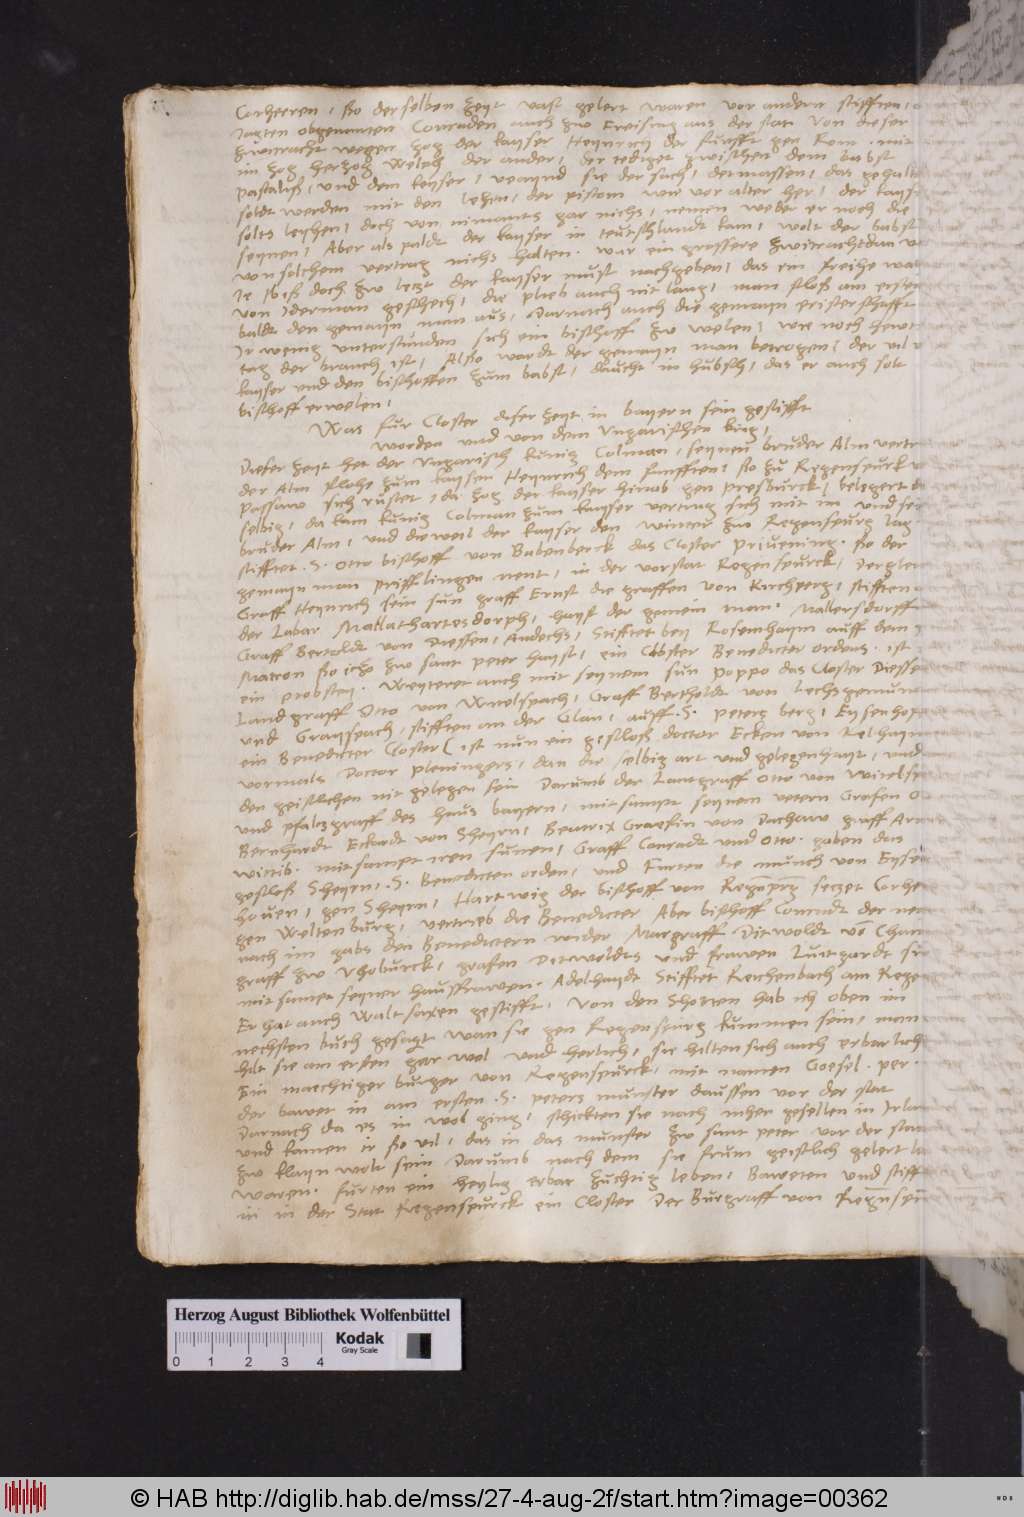 Corheeren, so der selben zeyt vast gelert waren vor andern stifften,
Jagten obgenanten Conraden auch zw Freising aus der stat. Von dieser
zwitracht wegen zog der kayser Heynrich der funfft gen Rom. mit
im zog herzog Welph der ander, der tediget zwischen dem babst
Pascaliß, und dem keyser, veraynd sie der sach, dermassen, das
soldt werden mit den lehen, der pistom wie vor alter her, der
solts leyhen, doch von nimants gar nichs, nemen weder er noch die
seynen, Aber als paldt der kayser in teutschlandt kam, wolt der babst
von solchem vertrag nichs halten. war ein grossere zwitracht dan
Je biß doch zw letzt der kayser must nachgeben, das ein freihe
von Jderman geschech, die plieb auch nit lang, man schloß am ersten
baldt den gemayn man aus, Darnach auch die gemayn priesterschafft
Jr wenig understunden sich ein bischoff zw welen, wie noch hewt
tag der brauch ist, Also wardt der gemayn man betrogen, der vil
kayser und den bischoffen zum babst, daucht in hubsch, das er auch solt
bischoff erwelen,
Was fur Closter diser zeyt in bayern sein gestifft
worden und von dem Ungarischen king,
Dieser zeyt het der Ungarisch kunig Colman, seynen bruder Alm
der Alm flohe zum kaysen Heynrich dem funfften, so zu Regenspurck
Passaw sich rustet, da zog der kayser hinab gen Presburck, belegert
selbig, da kam kunig Colman zum kayser vertrug sich mit im und
bruder Alm, und dieweil der kayser den winter zw Regenspurg lag
stifftet .S. Otto bischoff von Babenberck das Closter Priuening. so der
gemayn man Prifflingen nent, in der vorstat Regenspurck,
Graff Heynrich sein sun graff Ernst die graffen von Kirchperg, stifften
der Labar Mallathartesdorph, hayst der gemein man. Mallersdorff
Graff Bertoldt von Diessen, Andechs, Stifftet bey Rosenhaym auff dem
Matron so itzo zw sant peter hayst, ein Closter Benedicter ordens. ist
ein probstey. Weyteret auch mit seynem sun Poppo das Closter
Landgraff Otto von Wittelspach, Graff Bertholdt von
und Grayspach, stifften an der Glan, auff .S. peters berg,
ein Benedicter Closter (ist nun ein geschloß doctor Ecken von
vormals Doctor pleningers, dan die selbig art und gelegenhayt, und
den geistlichen nit gelegen sein Darumb der Lantgraff Otto von
und pfalzgraff des haus bayern, mitsampt seynem vetern Grafen
Bernhardt Eckardt von Sheyrn, Beatrix Graefin von Dachaw graff
witib. mitsampt iren sunen, Graff Conradt und Otto. gaben das
geschloß Sheyrn, .S. Benedicten orden, und Furten die munch von
houen, gen Sheyrn, Hartwig der bischoff von Regenspurg seczet
gen Weltenburg, vertrieb die Benedicter Aber bischoff Conradt der
nach im gabs den Benedictern wider Margraff Ditwoldt von
graff zw Vhoburck, grafen Ditwoldts und frawen Luitgardt
mitsampt seyner hausfrawen. Adelhaydt Stifftet Reichenbach am
Er hat auch Waltsaxen gestifft, Von den Schotten hab ich oben im
nechsten buch gesagt wan sie gen Regenspurg kummen sein, man
hilt sie am ersten gar wol und herlich, sie hilten sich auch erbarlich
Ein maechtiger burger von Regenspurck, mit namen Goesel. per.
der bawet in am ersten .S. peters munster daussen vor der stat
Darnach da es in wol ging, schickten sie nach mher gesellen in Jrland
und kamen ir so vil, das in das munster zw sant peter vor der stat
zw klayn wolt sein Darumb nach dem sie frum geistlich gelert
waren. furten ein heylig erbar zuchtig leben, Baweten und
in in der Stat Regenspurck ein Closter Der Burgraff von
Herzog August Bibliothek Wolfenbüttel
Kodak
Gray Scale
0 1 2 3 4
© HAB http://diglib.hab.de/mss/27-4-aug-2f/start.htm?image=00362